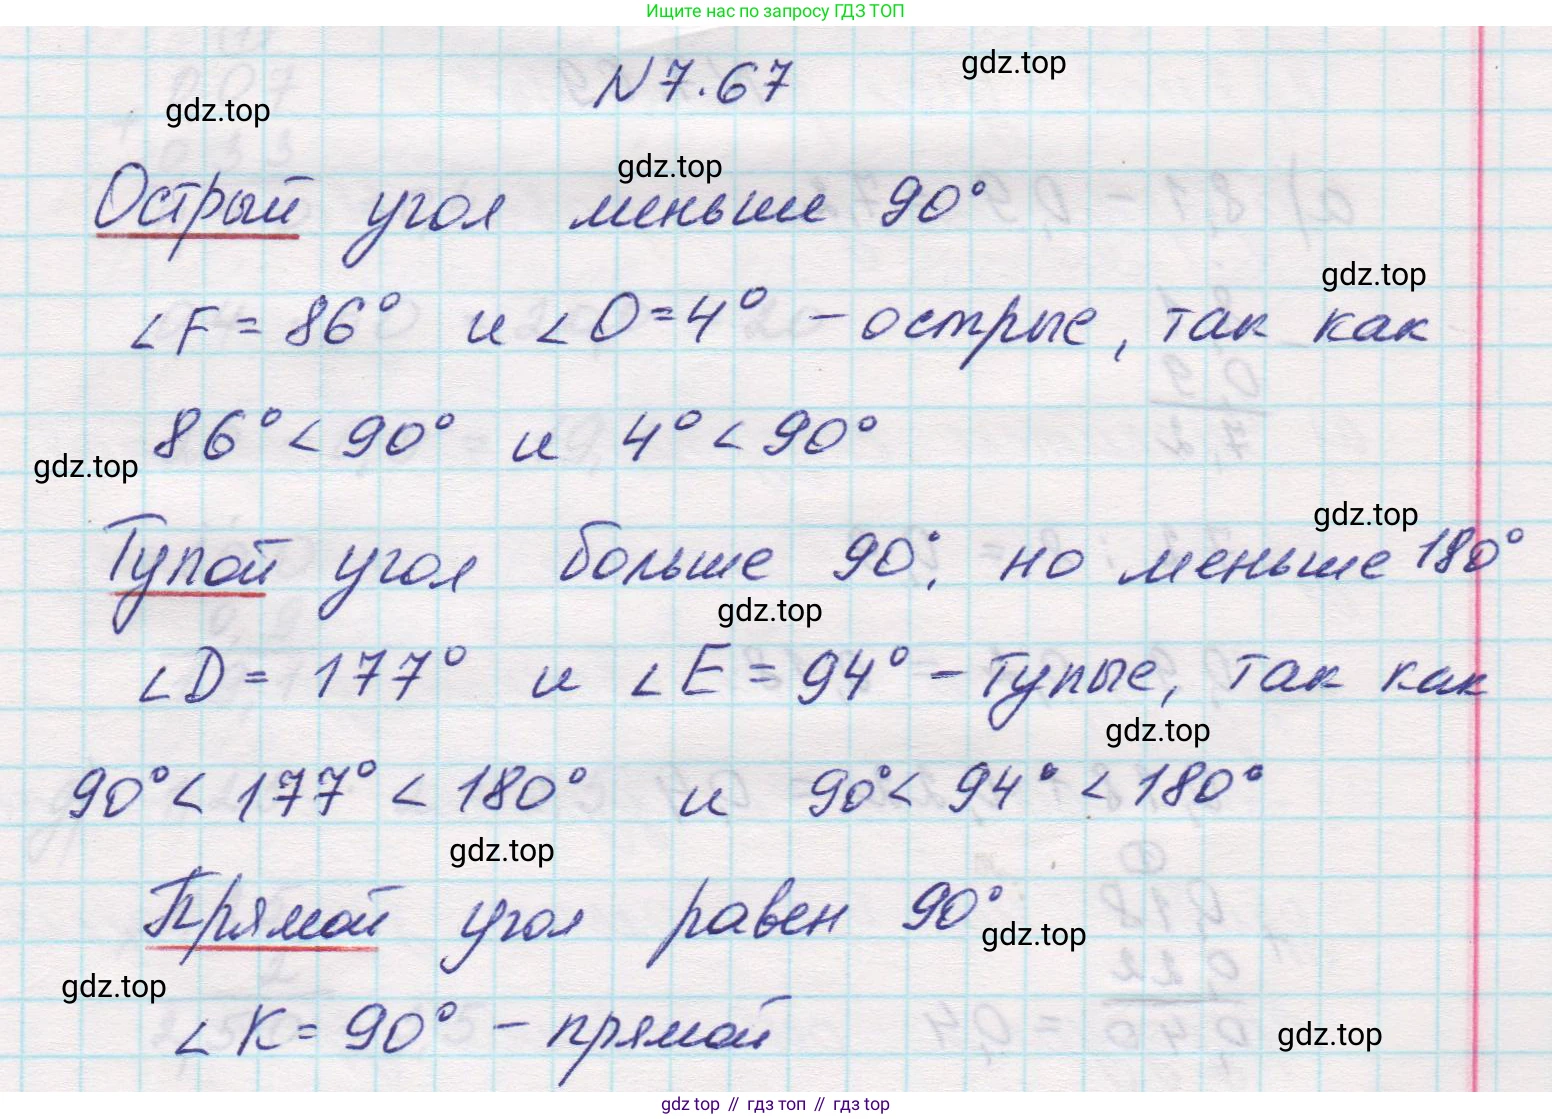 Ищите нас по запросу ГДЗ ТОП
N 7.67
gdz.top
gdz.top
gdz.top
Острый угол меньше 90°
gdz.top
∠F = 86° и ∠O = 4° – острые, так как
86° < 90° и 4° < 90°
gdz.top
gdz.top
Тупой угол больше 90°, но меньше 180°
gdz.top
∠D = 177° и ∠E = 94° – тупые, так как
gdz.top
90° < 177° < 180° и 90° < 94° < 180°
gdz.top
Прямой угол равен 90°
gdz.top
gdz.top
∠K = 90° – прямой
gdz.top
gdz top // гдз топ // гдз top